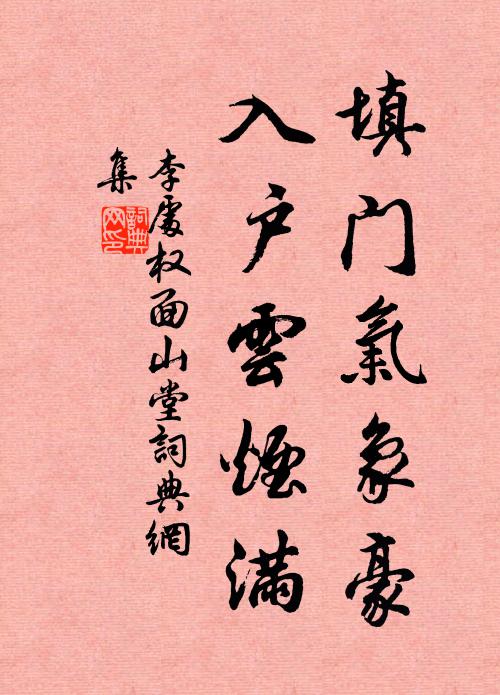 填門氣象豪
入戶雲煙滿
李處权面山堂詞典網
集
詞典
网印